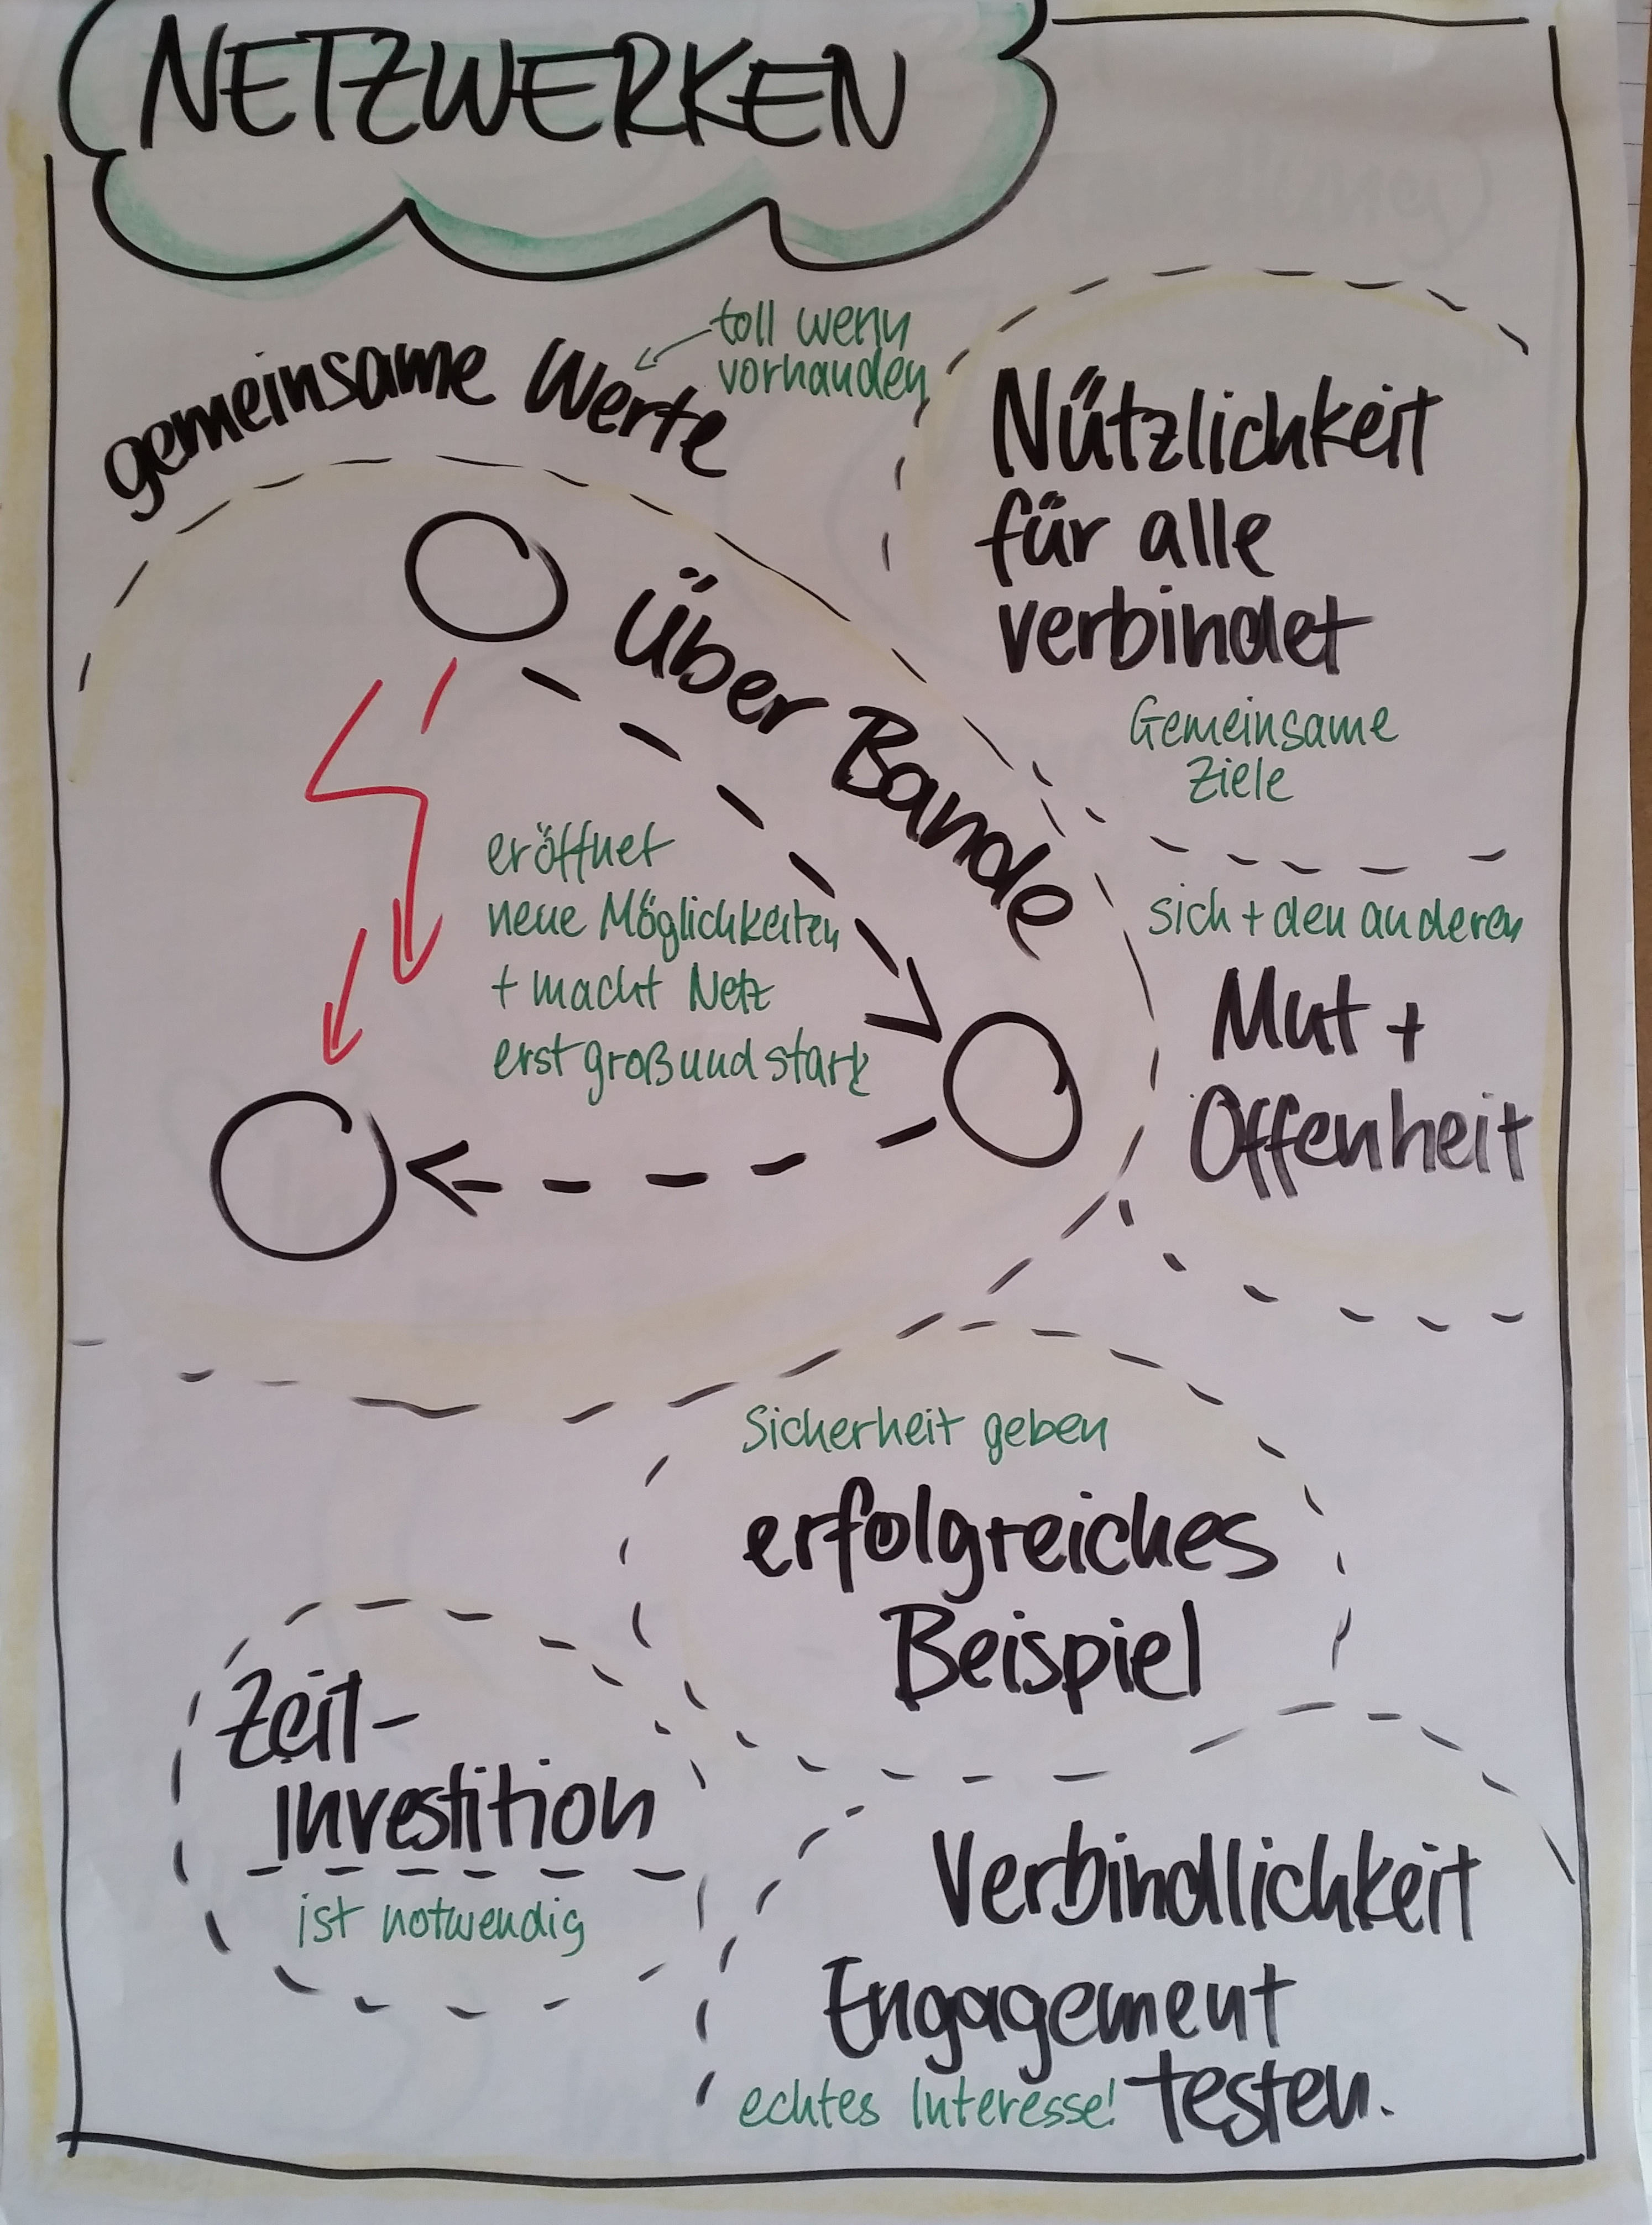 NETZWERKEN
toll wenn
vorhanden
gemeinsame Werte
Nützlichkeit
für alle
verbindet
Gemeinsame
Ziele
Über Bande
eröffnet
neue Möglichkeiten
+ macht Netz
erst groß und stark
sich + den anderen
Mut +
Offenheit
Sicherheit geben
erfolgreiches
Beispiel
Zeit-
investition
ist notwendig
Verbindlichkeit
Engagement
echtes Interesse! testen.